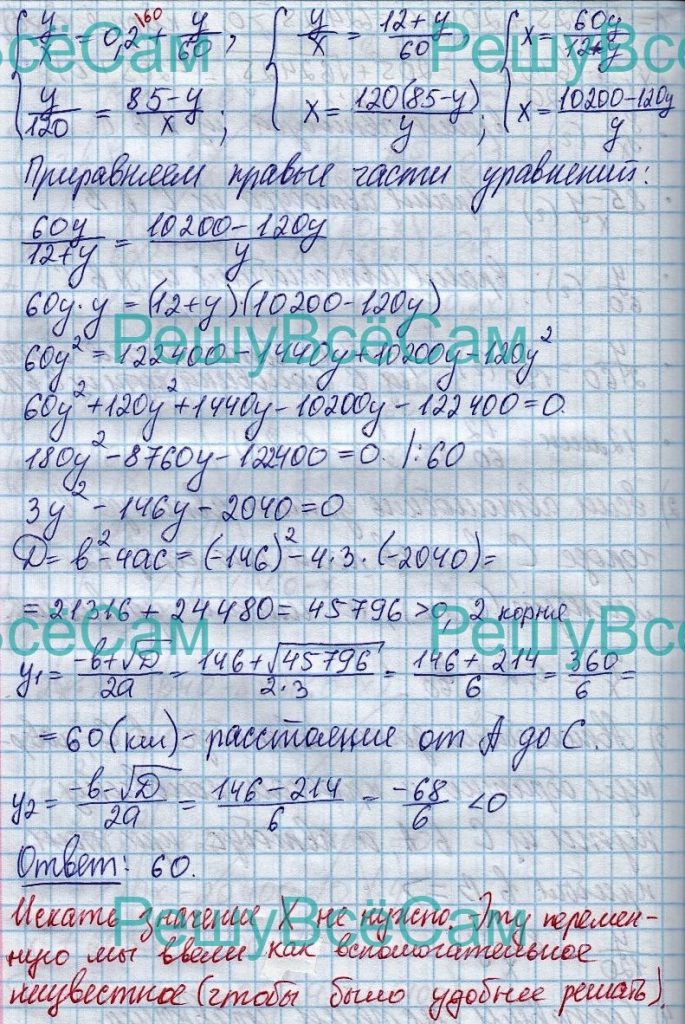 { y/x = 0,2^{160} + y/60 ; { y/x = (12+y)/60 , { x = 60y/(12+y)
{ y/120 = (85-y)/x ; { x = 120(85-y)/y ; { x = (10200-120y)/y
Приравняем правые части уравнений:
60y/(12+y) = (10200-120y)/y
60y·y = (12+y)(10200-120y)
60y² = 122400 - 1440y + 10200y - 120y²
60y² + 120y² + 1440y - 10200y - 122400 = 0.
180y² - 8760y - 122400 = 0. /:60
3y² - 146y - 2040 = 0
D = b² - 4ac = (-146)² - 4·3·(-2040) =
= 21316 + 24480 = 45796 > 0, 2 корня
y₁ = (-b+√D)/2a = (146+√45796)/(2·3) = (146+214)/6 = 360/6 =
= 60 (км) - расстояние от А до С.
y₂ = (-b-√D)/2a = (146-214)/6 = -68/6 < 0
Ответ: 60.
Искать значение X не нужно. Эту перемен-
ную мы ввели как вспомогательное
неизвестное (чтобы было удобнее решать).
РешуВсёСам